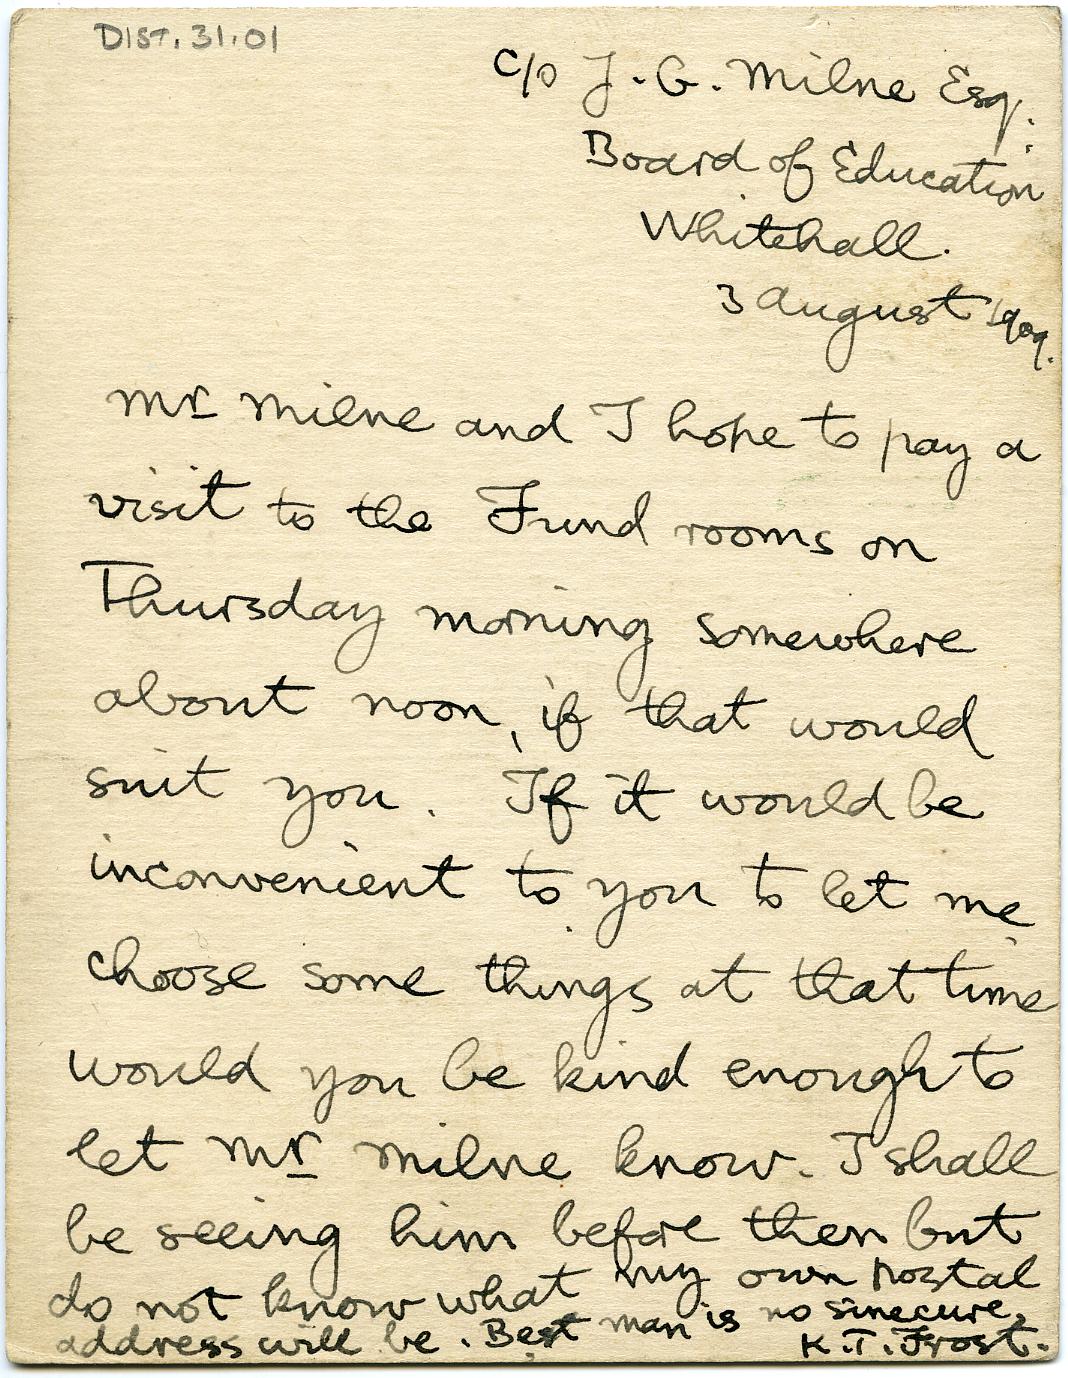 DIST. 31.01
c/o J. G. Milne Esq.
Board of Education
Whitehall.
3 August 1909.
Mr Milne and I hope to pay a
visit to the Fund rooms on
Thursday morning somewhere
about noon, if that would
suit you. If it would be
inconvenient to you to let me
choose some things at that time
would you be kind enough to
let Mr Milne know. I shall
be seeing him before then but
do not know what my own postal
address will be. Best man is no sinecure.
K. T. Frost.